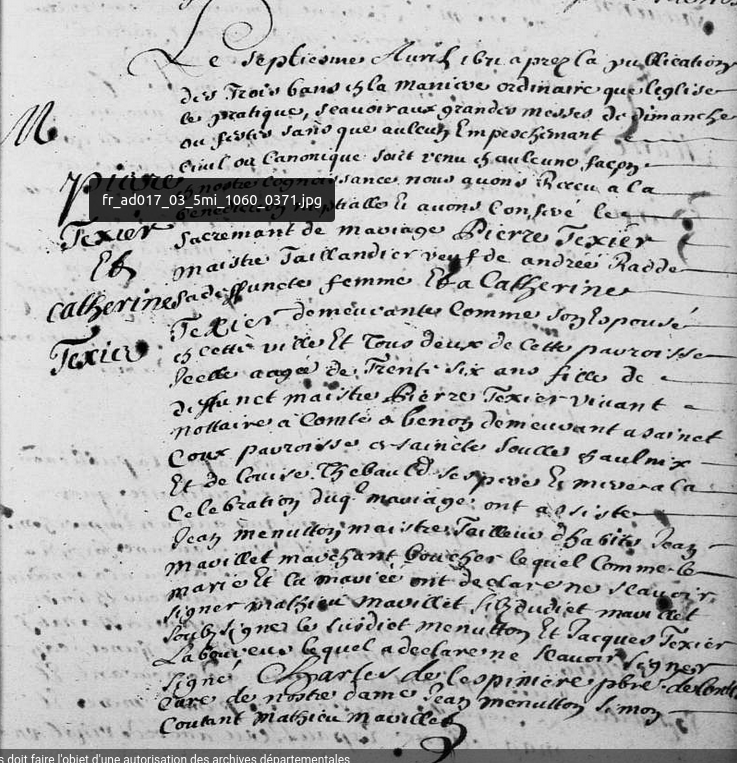 Le septiesme Avril 1671 aprez la publication
des Trois bans en la maniere ordinaire que leglise
le pratique, scavoir aux grandes messes de dimanche
ou festes sans que aulcun Empeschemant
Civil ou Canonique soict venu en aulcune facon
M
a nostre cognoissance nous avons Receu a la
Pierre
fr_ad017_03_5mi_1060_0371.jpg
nuptialle Et avons Conferé le
Texier
sacremant de mariage a Pierre Texier
Et
maistre Taillandier veuf de andrée Radde
catherine
sa deffuncte femme Et a Catherine
Texier
Texier demeurante Comme son Espousé
en cette ville Et Tous deux de Cette parroisse
Icelle aagee de Trente six ans fille de
deffunct maistre Pierre Texier vivant
nottaire a Comté de benon demeurant a sainct
Coux parroisse de saincte Soulle en aulnix
Et de Louise Thebauld ses pere Et mere a la
Celebration duql mariage ont assisté
Jean menutton maistre Tailleur dhabits Jean
mavillet marchant boucher lequel Comme le
marié Et la mariée ont declaré ne scavoir
signer mathieu mavillet filz dudict mavillet
soubsigné le susdict menutton Et Jacques Texier
Laboureur lequel a declaré ne scavoir signer
signé Charles de Lespiniere pbre
Curé de nostre dame Jean menutton simon
Coutant mathieu mavillet
s doit faire l'objet d'une autorisation des archives départementales